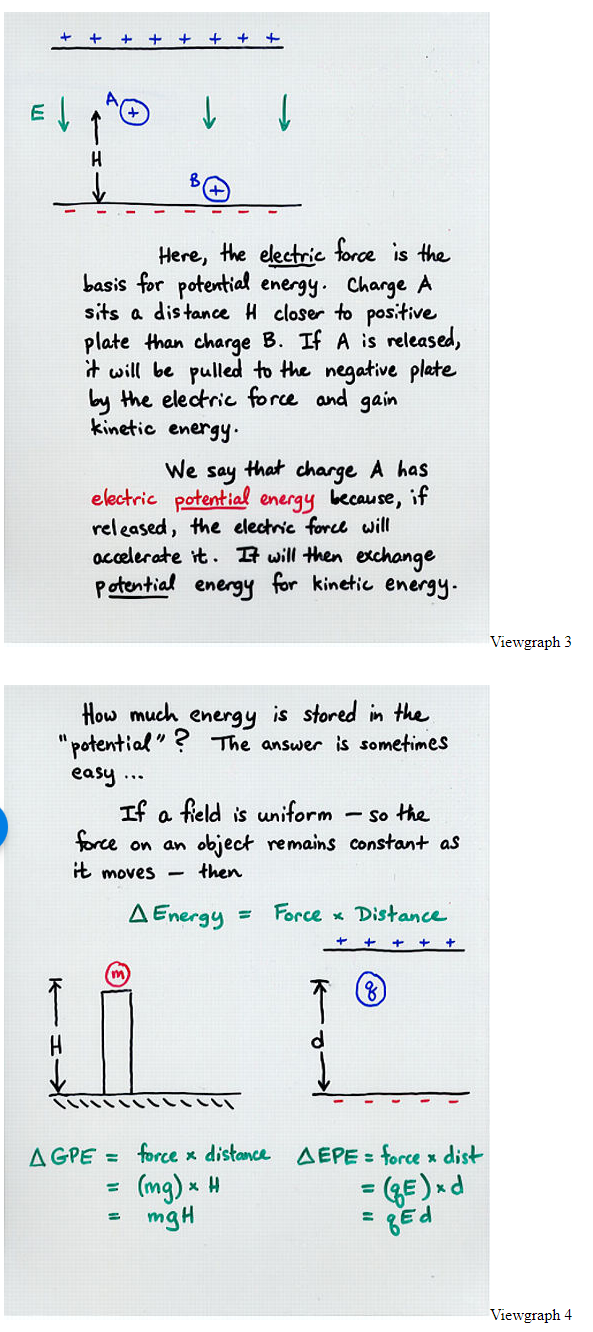 + + + + + + + +
E
A
+
H
B
+
- - - - - - - -
Here, the electric force is the
basis for potential energy. Charge A
sits a distance H closer to positive
plate than charge B. If A is released,
it will be pulled to the negative plate
by the electric force and gain
kinetic energy.
We say that charge A has
electric potential energy because, if
released, the electric force will
accelerate it. It will then exchange
potential energy for kinetic energy.
Viewgraph 3
How much energy is stored in the
"potential"? The answer is sometimes
easy ...
If a field is uniform – so the
force on an object remains constant as
it moves – then
Δ Energy = Force × Distance
+ + + + +
m
q
H
d
- - - - -
Δ GPE = force × distance
= (mg) × H
= mgH
ΔEPE = force × dist
= (qE) × d
= qEd
Viewgraph 4